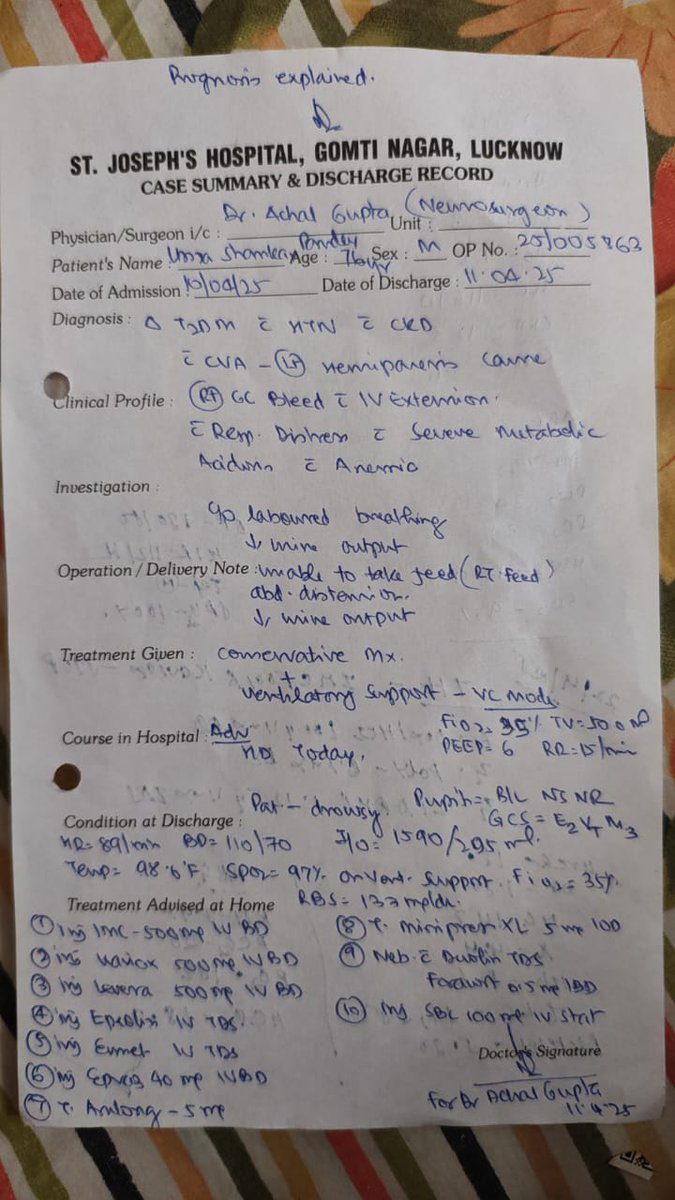 Prognosis explained.
ST. JOSEPH'S HOSPITAL, GOMTI NAGAR, LUCKNOW
CASE SUMMARY & DISCHARGE RECORD
Physician/Surgeon i/c : Dr. Achal Gupta (Neurosurgeon) Unit :
Patient's Name : Shanker Pandey Age : 76yr Sex : M OP No. : 25/005863
Date of Admission : 10/04/25 Date of Discharge : 11.04.25
Diagnosis : Δ T2DM c̄ HTN c̄ CKD
c̄ CVA - Lt hemiparesis cause
Clinical Profile : Rt GC Bleed c̄ IV Extension.
c̄ Resp. Distress c̄ Severe Metabolic
Acidosis c̄ Anemia
Investigation :
c/o laboured breathing
↓ urine output
Operation / Delivery Note : unable to take feed (RT. feed)
abd. distension.
↓ urine output
Treatment Given : conservative Mx.
+
ventilatory support - VC mode
FiO2 35% TV=500 ml
Course in Hospital : Adv
HD Today.
PEEP= 6 RR=15/min
Pat - drowsy. Pupil= B/L NS NR
Condition at Discharge : GCS = E2 VT M3
HR= 89/min BP= 110/70 I/O= 1590/295 ml.
Temp= 98.6°F SPO2= 97% on vent. support. FiO2= 35%
Treatment Advised at Home RBS= 133 mg/dl.
① inj IMC-500mg IV BD
② inj 500 mg IV BD
③ inj Levera 500 mg IV BD
④ inj IV TDS.
⑤ inj Emet IV TDS
⑥ inj 40 mg IV BD
⑦ T. Amlong - 5 mg
⑧ T. Minipress XL 5 mg OD
⑨ Neb. c̄ Duolin TDS
0.5 mg BD
⑩ inj 100 mg IV stat
Doctor's Signature
For Dr Achal Gupta
11.4.25